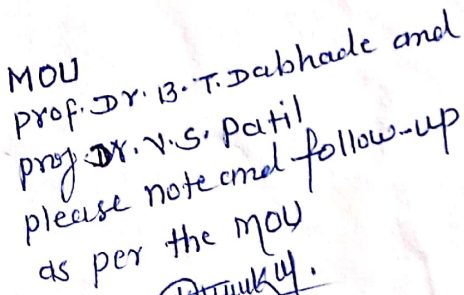 MOU
prof. Dr. B. T. Dabhade and
prof. Dr. V. S. Patil
please note and follow-up
as per the MOU